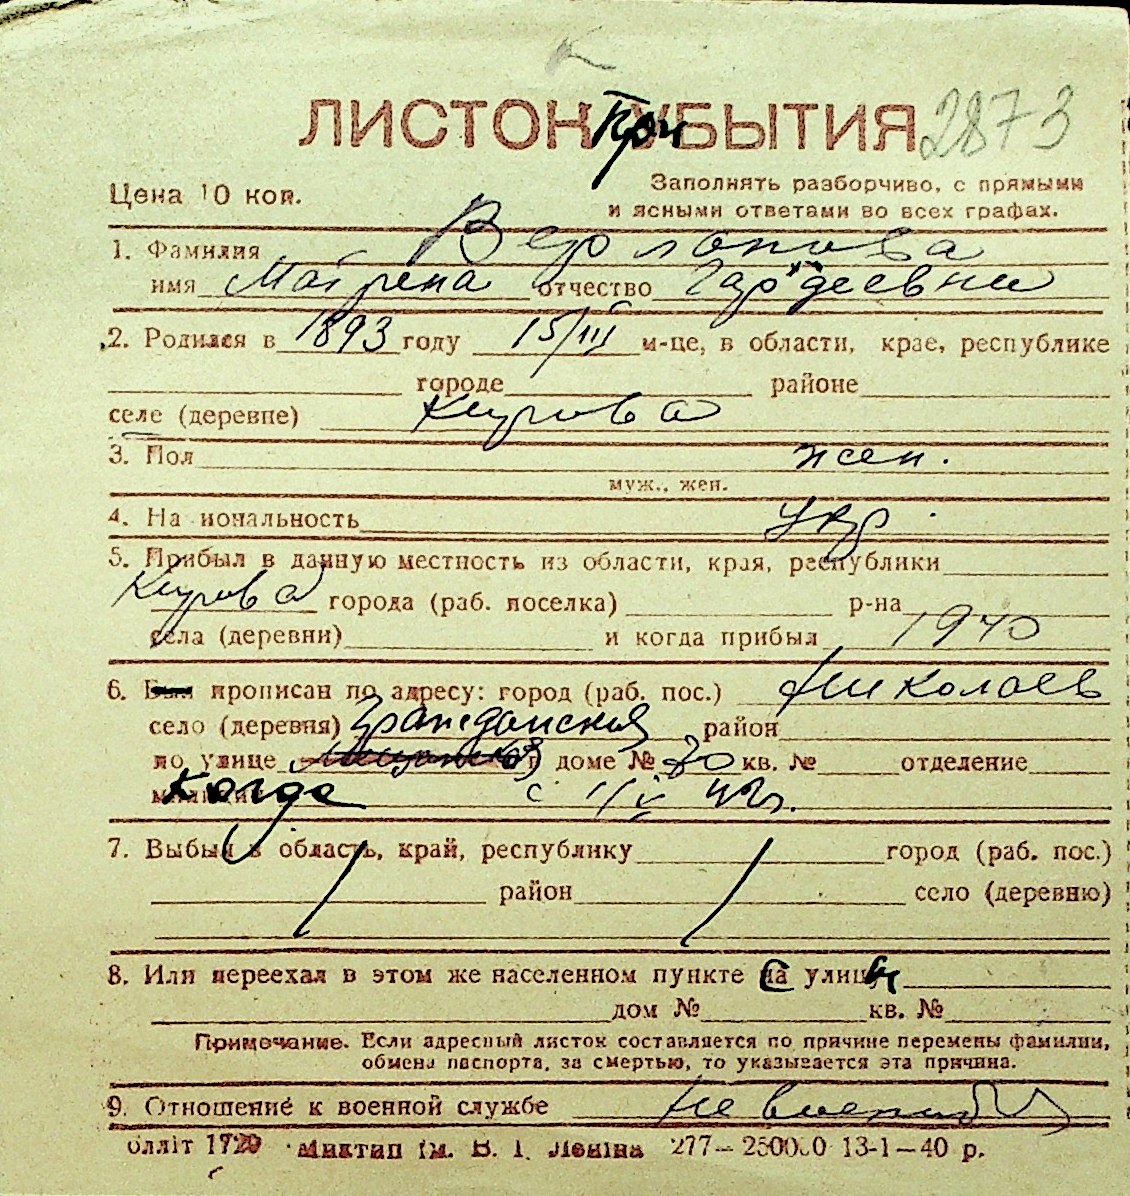 ЛИСТОК При УБЫТИЯ 2873
Цена 10 коп.
Заполнять разборчиво, с прямыми
и ясными ответами во всех графах.
1. Фамилия
имя Матрена отчество Гордеевна
2. Родился в 1893 году 15/III м-це, в области, крае, республике
городе районе
селе (деревне) Кирова
3. Пол жен.
муж., жен.
4. Национальность укр.
5. Прибыл в данную местность из области, края, республики
Кирова города (раб. поселка) р-на
села (деревни) и когда прибыл 1940
6. Был прописан по адресу: город (раб. пос.) Николаев
село (деревня) Гражданская район
по улице доме № 30 кв. № отделение
милиции Когда с 1/V 42г.
7. Выбыл в область, край, республику город (раб. пос.)
район село (деревню)
8. Или переехал в этом же населенном пункте с улицы
дом № кв. №
Примечание. Если адресный листок составляется по причине перемены фамилии,
обмена паспорта, за смертью, то указывается эта причина.
9. Отношение к военной службе
Облліт 1720 Миктип ім. В. І. Леніна 277—250000 13-1—40 р.